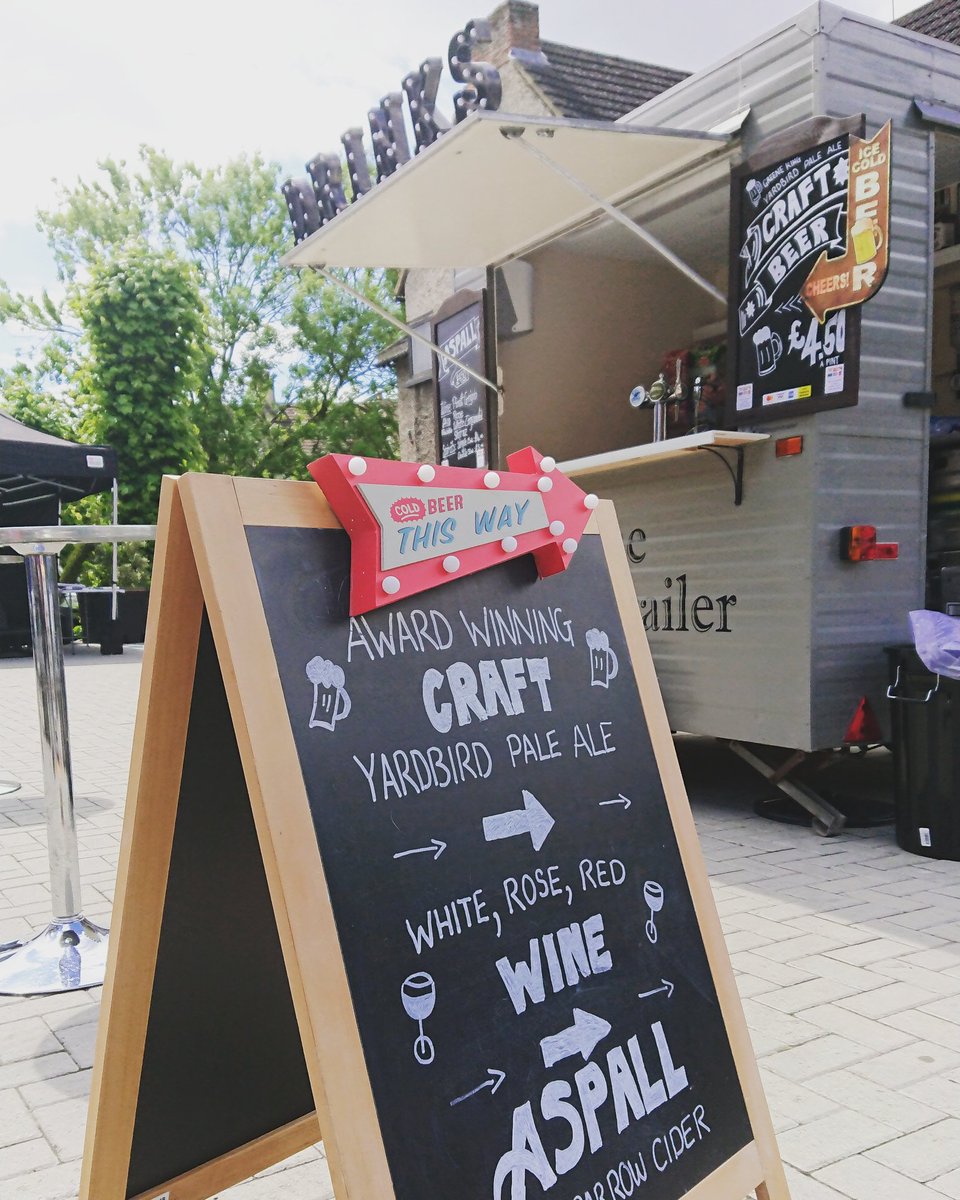 DRINKS
GREENE KING
YARDBIRD PALE ALE
CRAFT
BEER
£4.50
A PINT
ICE
COLD
BEER
CHEERS!
ASPALL
COLD BEER
THIS WAY
AWARD WINNING
CRAFT
YARDBIRD PALE ALE
WHITE, ROSE, RED
WINE
ASPALL
CIDER